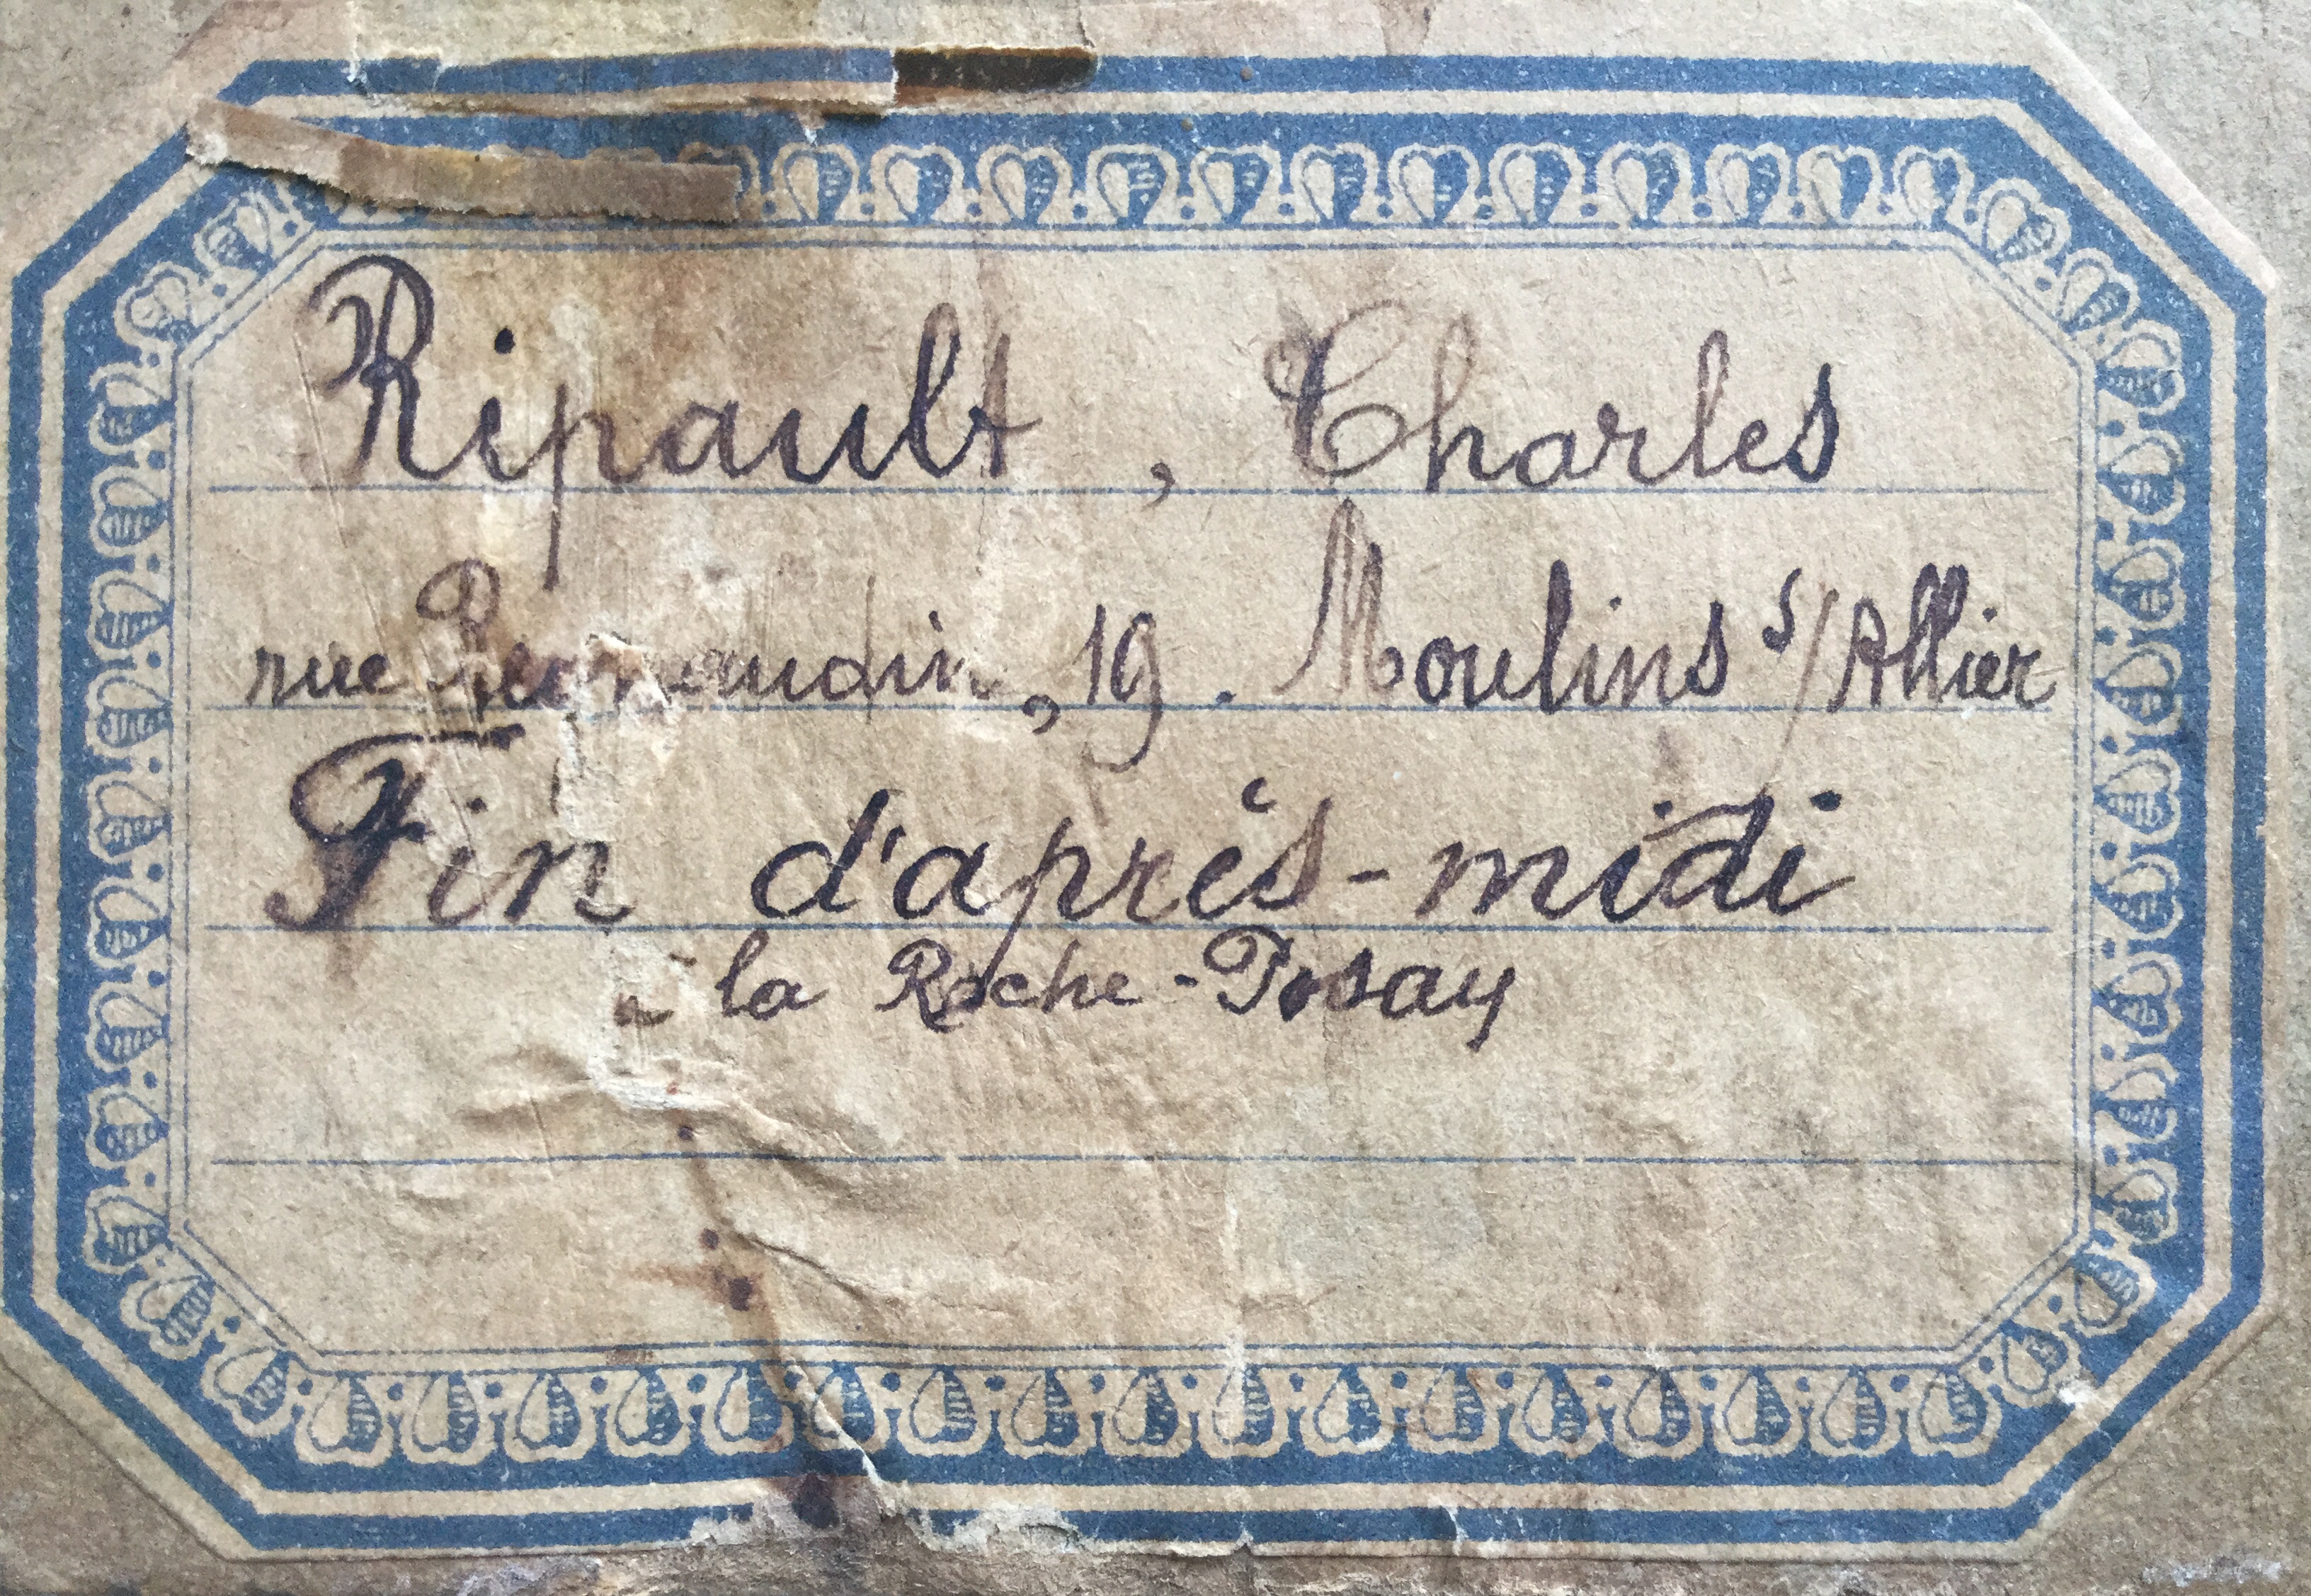 Ripault, Charles
rue , 19. Moulins s/Allier
Fin d'après-midi
à la Roche-Posay